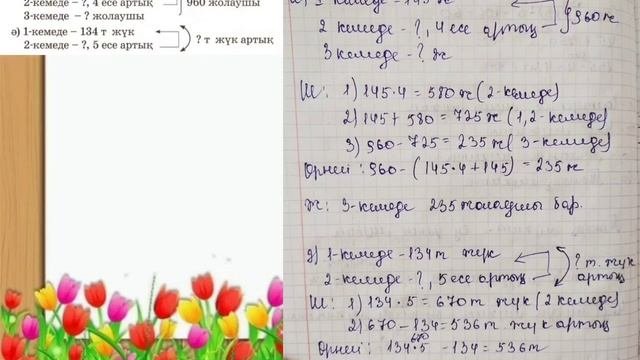 2-кемеде – ?, 4 есе артық
960 жолаушы
3-кемеде – ? жолаушы
ә) 1-кемеде – 134 т жүк
? т жүк артық
2-кемеде – ?, 5 есе артық
2 кемеде - ?, 4 есе артық
960ж
3 кемеде - ? ж
Ш: 1) 145·4 = 580 ж (2-кемеде)
2) 145 + 580 = 725 ж (1,2-кемеде)
3) 960 - 725 = 235 ж (3-кемеде)
Өрнегі: 960 - (145·4+145) = 235 ж
Ж: 3-кемеде 235 жолаушы бар.
ә) 1-кемеде - 134 т жүк
? т. жүк артық
2-кемеде - ?, 5 есе артық
Ш: 1) 134·5 = 670 т жүк (2 кемеде)
2) 670 - 134 = 536 т жүк артық
670
Өрнегі: 134·5 - 134 = 536 т